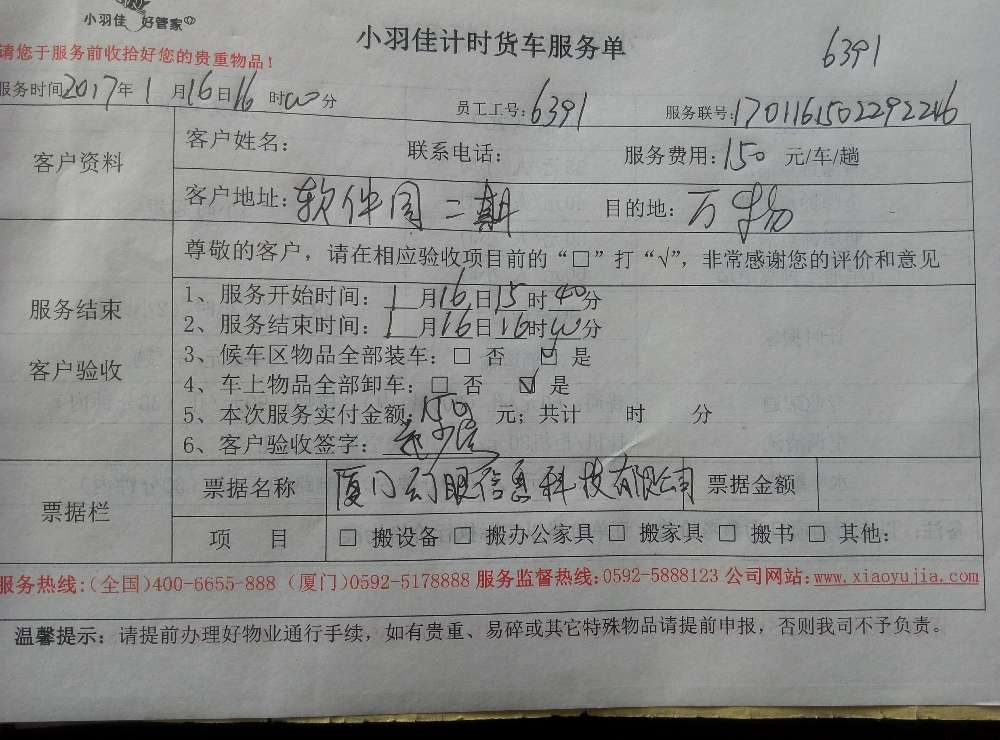 小羽佳 好管家
小羽佳计时货车服务单
6391
请您于服务前收拾好您的贵重物品！
服务时间2017年1月16日16时00分 员工工号:6391 服务联号:1701161502292246
客户资料
客户姓名： 联系电话： 服务费用:150元/车/趟
客户地址:软件园二期 目的地:万
服务结束
客户验收
尊敬的客户，请在相应验收项目前的“□”打“√”，非常感谢您的评价和意见
1、服务开始时间：1月16日15时40分
2、服务结束时间：1月16日16时00分
3、候车区物品全部装车：□ 否 ☑ 是
4、车上物品全部卸车：□ 否 ☑ 是
5、本次服务实付金额:150元；共计 时 分
6、客户验收签字：
票据栏
票据名称 厦门幻眼信息科技有限公司 票据金额
项 目 □ 搬设备 □ 搬办公家具 □ 搬家具 □ 搬书 □ 其他：
服务热线:(全国)400-6655-888 (厦门)0592-5178888 服务监督热线:0592-5888123 公司网站:www.xiaoyujia.com
温馨提示：请提前办理好物业通行手续，如有贵重、易碎或其它特殊物品请提前申报，否则我司不予负责。